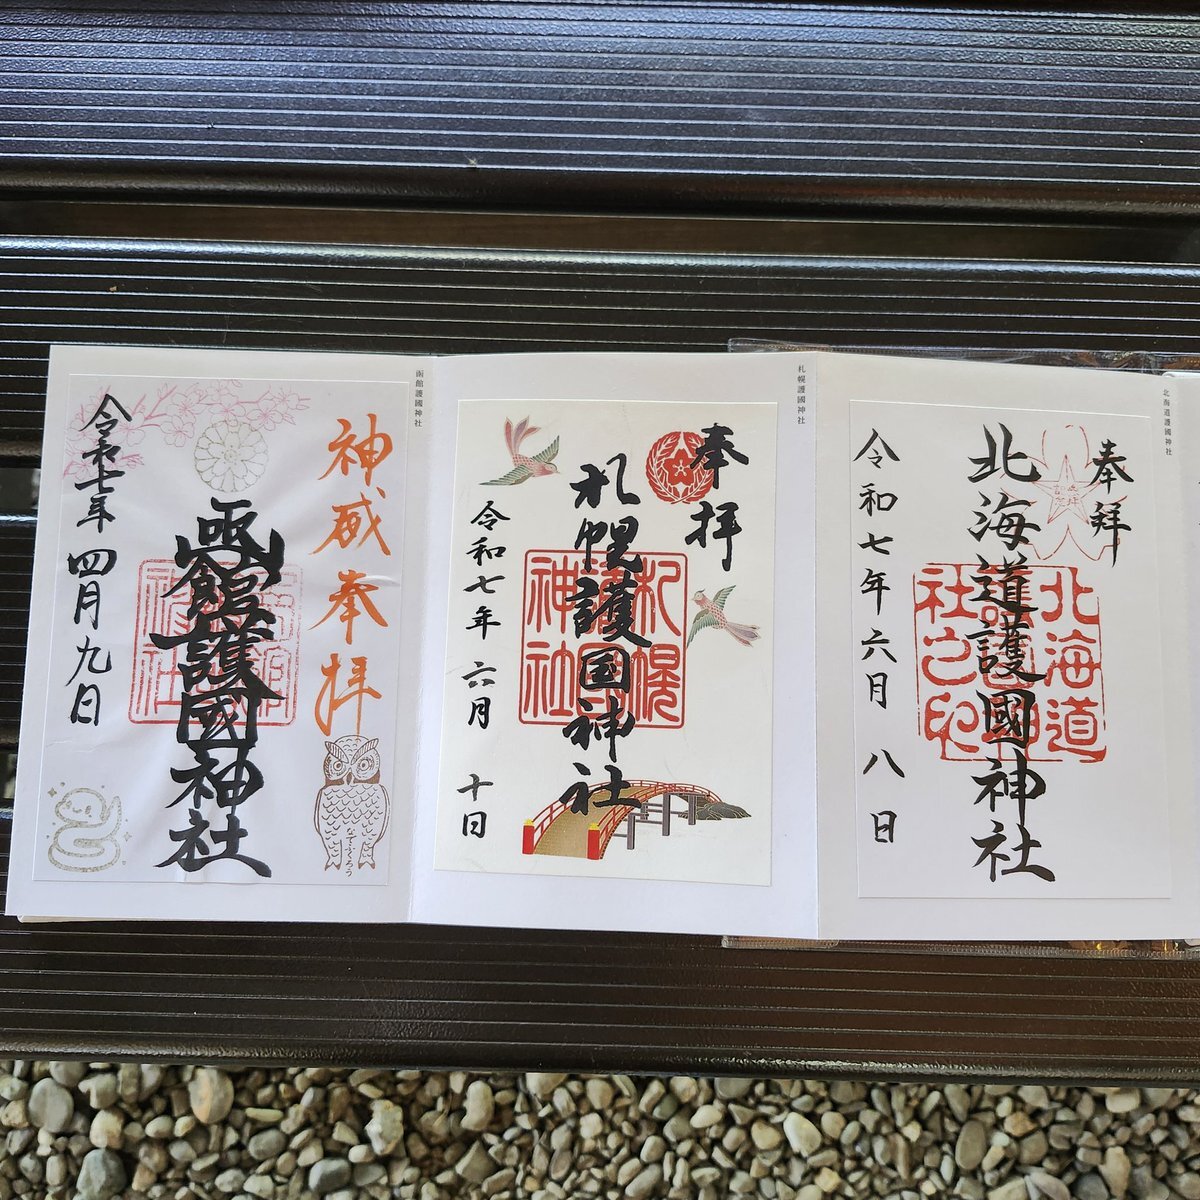 北海道護國神社
奉拝
北海道護國神社
令和七年六月八日
北海道護國神社之印
札幌護國神社
奉拝
札幌護国神社
令和七年六月十日
札幌護國神社
函館護國神社
神威奉拝
函館護國神社
令和七年四月九日
なでふくろう